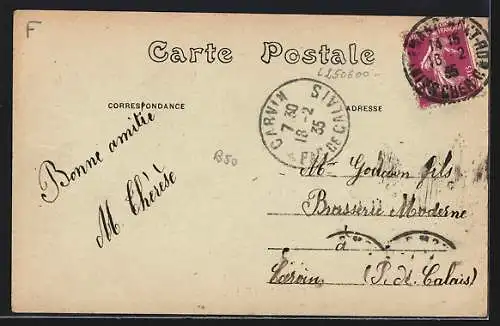 F
Carte Postale
L250600-
CORRESPONDANCE
ADRESSE
CARVIN
7 30
18 -2
35
PAS DE CALAIS
14 15
16 -2
35
B50
Bonne amitié
M. Thérèse
Mr Godawn fils
Brasserie Moderne
à
Carvin (P. de Calais)